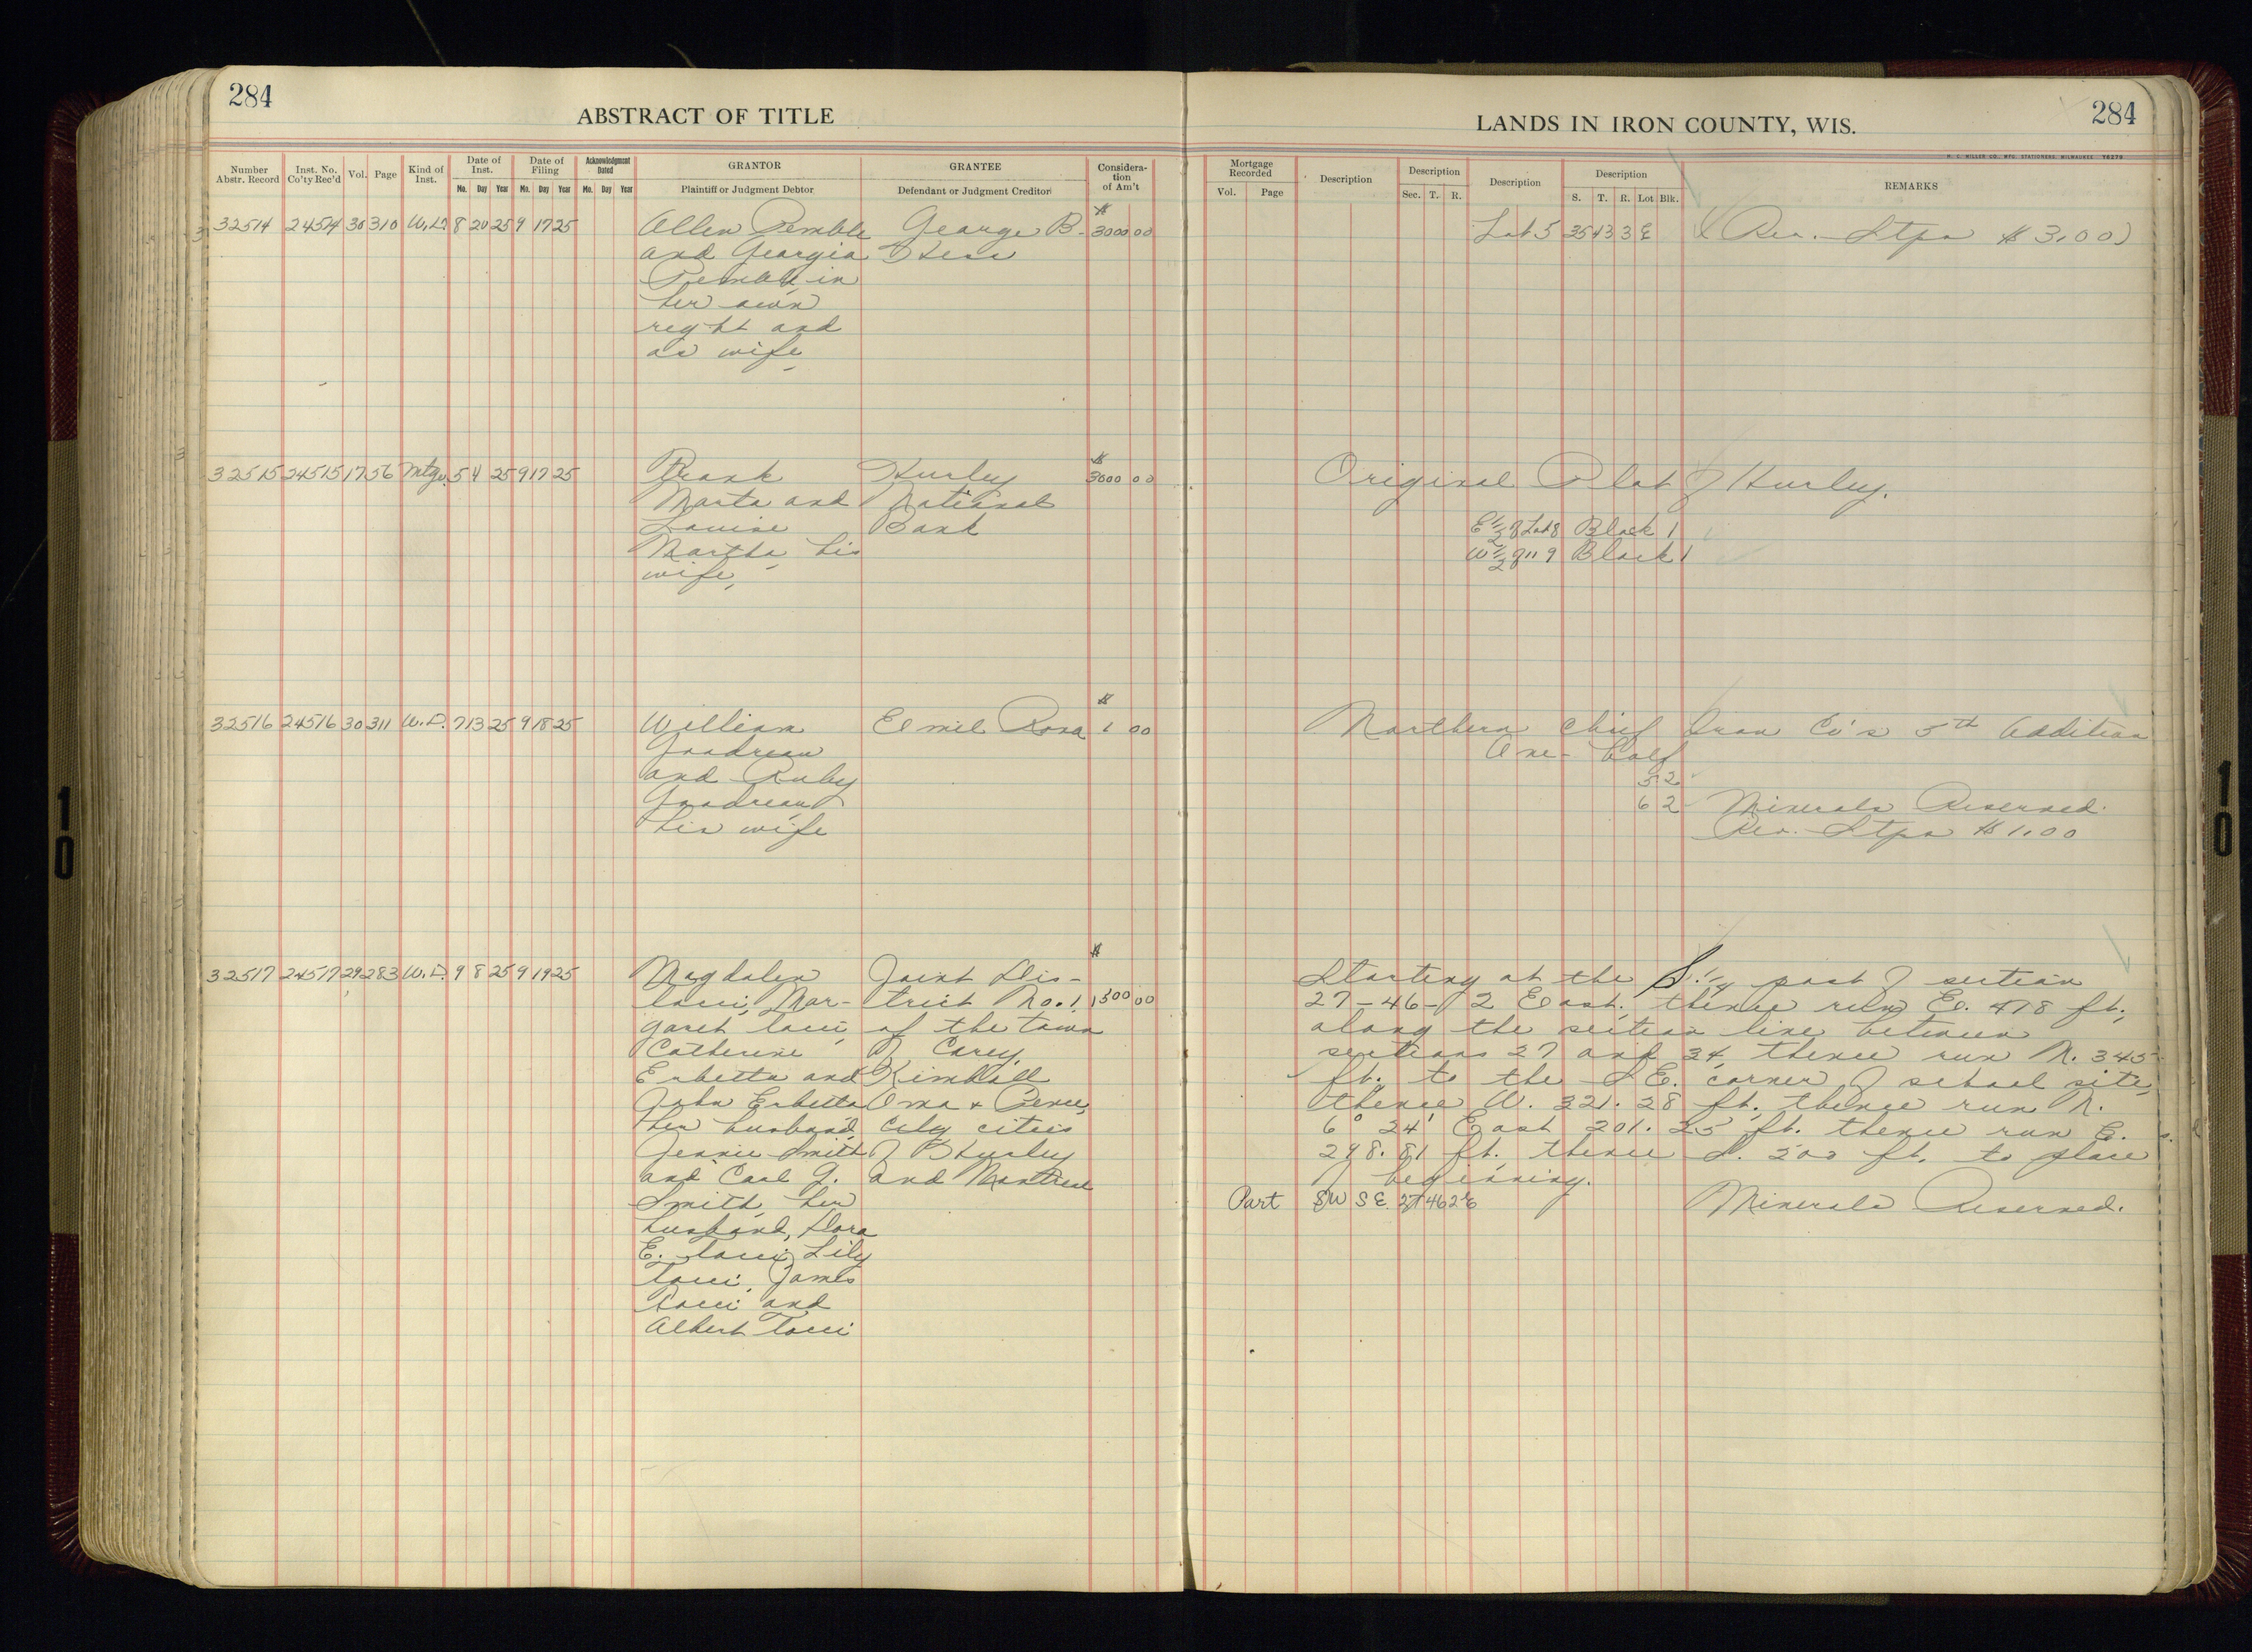 284
ABSTRACT OF TITLE
Number Abstr. Record
Inst. No. Co'ty Rec'd
Vol.
Page
Kind of Inst.
Date of Inst.
Mo. Day Year
Date of Filing
Mo. Day Year
Acknowledgment Dated
Mo. Day Year
GRANTOR
Plaintiff or Judgment Debtor
GRANTEE
Defendant or Judgment Creditor
Considera-
tion
of Am't
32514 24514 30 310 W.D. 8 20 25 9 17 25 Allen Pemble George B. $3000 00
and Georgia
Pemble, in
her own
right and
as wife
32515 24515 17 56 Mtge. 5 4 25 9 17 25 Frank Hurley $3000 00
Marta and National
Louise Bank
Martha, his
wife,
32516 24516 30 311 W.D. 7 13 25 9 18 25 William Emil Rosa $1 00
Goodreau
and Ruby
Goodreau
his wife
32517 24517 29 283 W.D. 9 8 25 9 19 25 Magdalen Joint Dis-
Mar- trict No. 1 $1500 00
garet of the town
Catherine of Carey,
Erbetta and Kimball
John Erbetta Oma & Pence,
her husband, City cities
Jennie Smith of Hurley
and Carl G. and Montreal
Smith, her
husband, Dora
E. Lily
James
and
Albert
284
LANDS IN IRON COUNTY, WIS.
H. C. MILLER CO., MFG. STATIONERS, MILWAUKEE
Mortgage Recorded
Vol. Page
Description
Description
Sec. T. R.
Description
Description
S. T. R. Lot Blk.
REMARKS
Lot 5 35 43 3 E (Rev. Stps $3.00)
Original Plat of Hurley.
E 1/2 of Lot 8 Block 1
W 1/2 of " 9 Block 1
Northern Chief Iron Co's 5th Addition
One-half
5 2
6 2 Minerals Reserved.
Rev. Stps $1.00
Starting at the S. 1/4 post of section
27-46-2 East, thence run E. 478 ft.,
along the section line between
sections 27 and 34, thence run N. 345
ft. to the S.E. corner of school site,
thence W. 321.28 ft., thence run N.
6° 24' East 201.25 ft. thence run E.
298.81 ft. thence S. 200 ft. to place
of beginning.
Part SW SE 27 46 2 E Minerals Reserved.